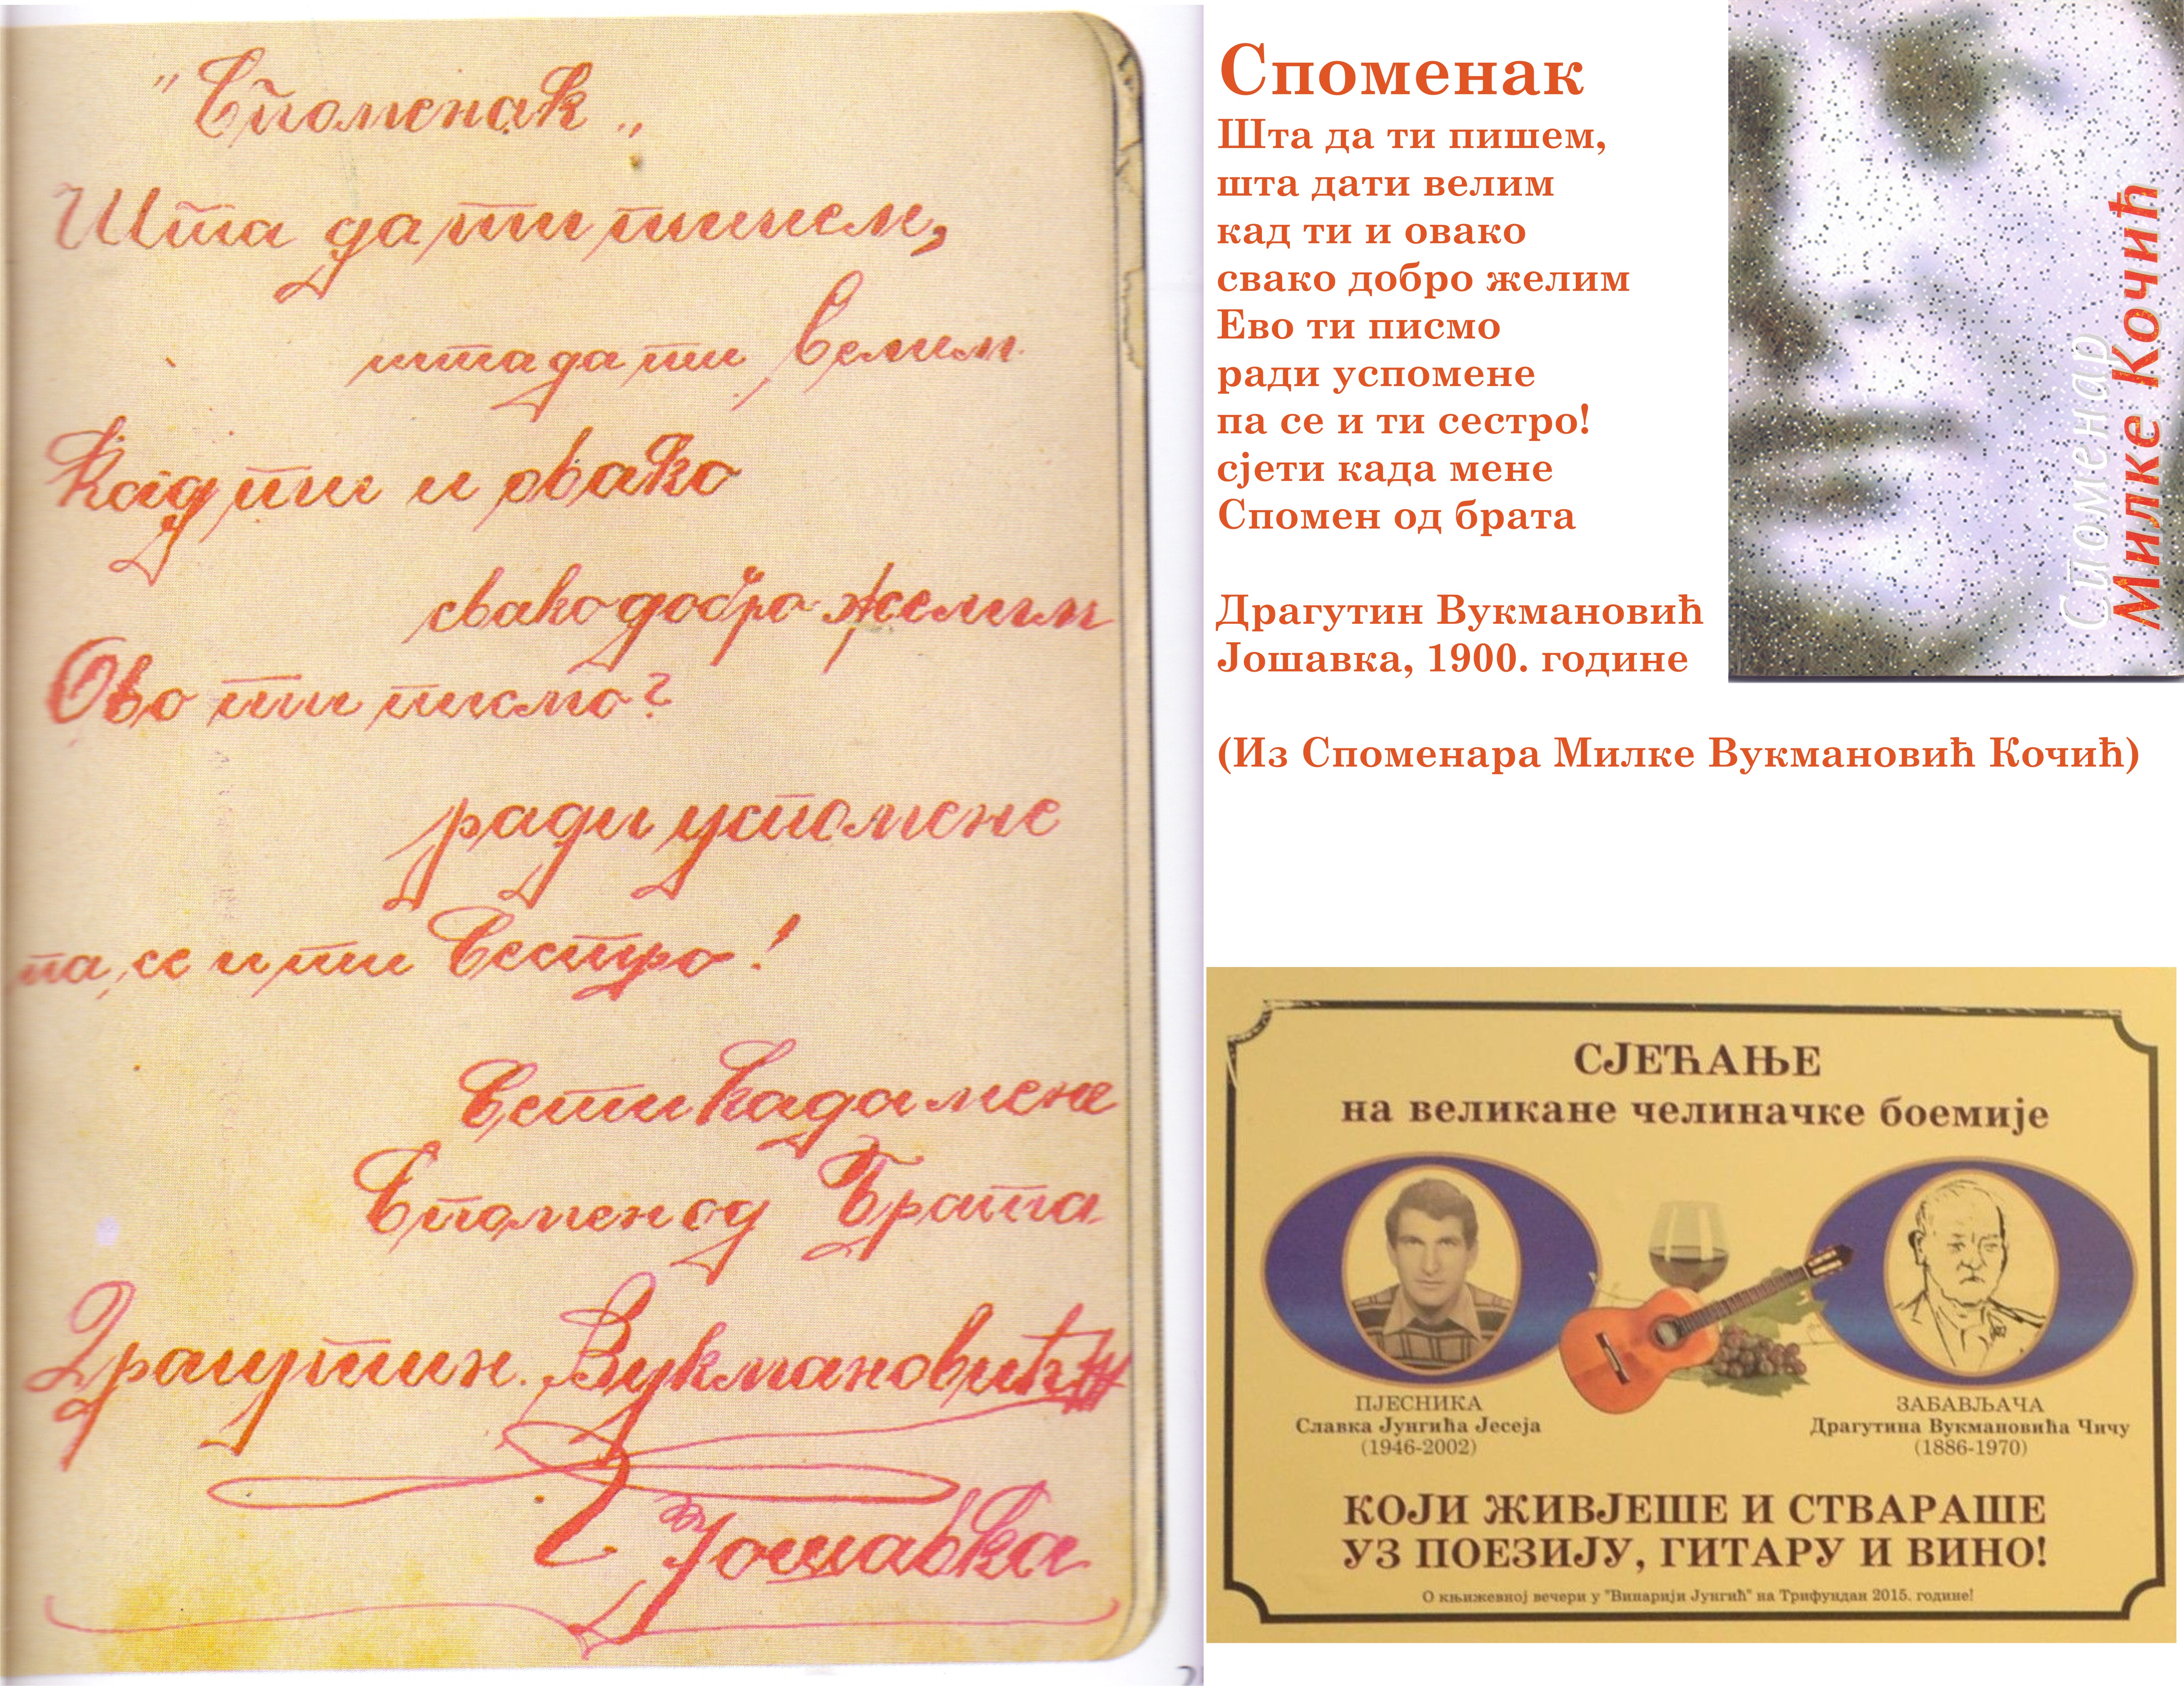 „Споменак„
Шта да ти пишем,
шта да ти велим
Кад ти и овако
свако добро желим
Ово ти писмо?
ради успомене
па, се и ти Сестро!
Сети када мене
Спомен од Брата
Драгутин. Вукмановић
Јошавка
Споменак
Шта да ти пишем,
шта дати велим
кад ти и овако
свако добро желим
Ево ти писмо
ради успомене
па се и ти сестро!
сјети када мене
Спомен од брата
Драгутин Вукмановић
Јошавка, 1900. године
(Из Споменара Милке Вукмановић Кочић)
Споменар
Милке Кочић
СЈЕЋАЊЕ
на великане челиначке боемије
ПЈЕСНИКА
Славка Јунгића Јесеја
(1946-2002)
ЗАБАВЉАЧА
Драгутина Вукмановића Чичу
(1886-1970)
КОЈИ ЖИВЈЕШЕ И СТВАРАШЕ
УЗ ПОЕЗИЈУ, ГИТАРУ И ВИНО!
О књижевној вечери у "Винарији Јунгић" на Трифундан 2015. године!